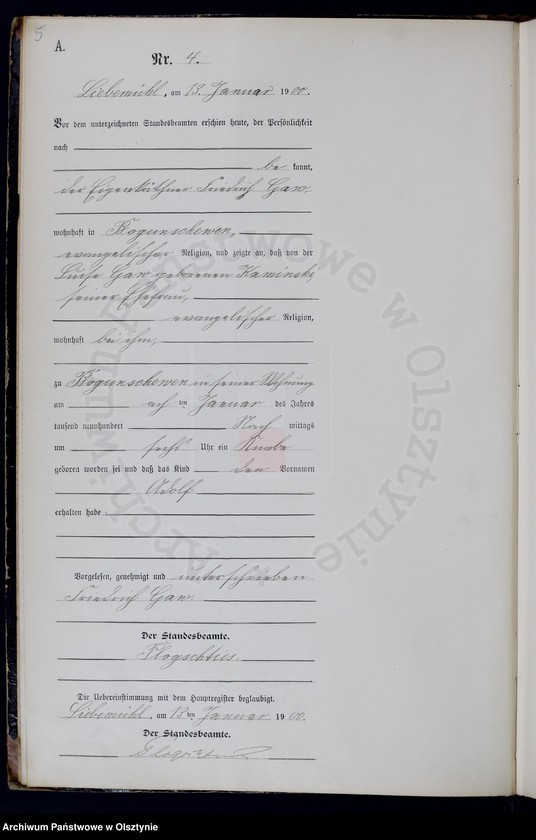 5
A.
Nr. 4.
Liebemühl, am 13. Januar 1900.
Vor dem unterzeichneten Standesbeamten erschien heute, der Persönlichkeit
nach
be kannt,
der Eigenkäthner Friedrich Gaw,
wohnhaft in Bogunschewen,
evangelischer Religion, und zeigte an, daß von der
Luise Gaw geborenen Kaminski,
seiner Ehefrau,
evangelischer Religion,
wohnhaft bei ihm,
zu Bogunschewen in seiner Wohnung
am ach ten Januar des Jahres
tausend neunhundert Nach mittags
um sechs Uhr ein Knabe
geboren worden sei und daß das Kind den Vornamen
Adolf
erhalten habe.
Vorgelesen, genehmigt und unterschrieben
Friedrich Gaw.
Der Standesbeamte.
Die Uebereinstimmung mit dem Hauptregister beglaubigt.
Liebemühl, am 13 ten Januar 1900.
Der Standesbeamte.
Archiwum Państwowe w Olsztynie
Archiwum Państwowe w Olsztynie